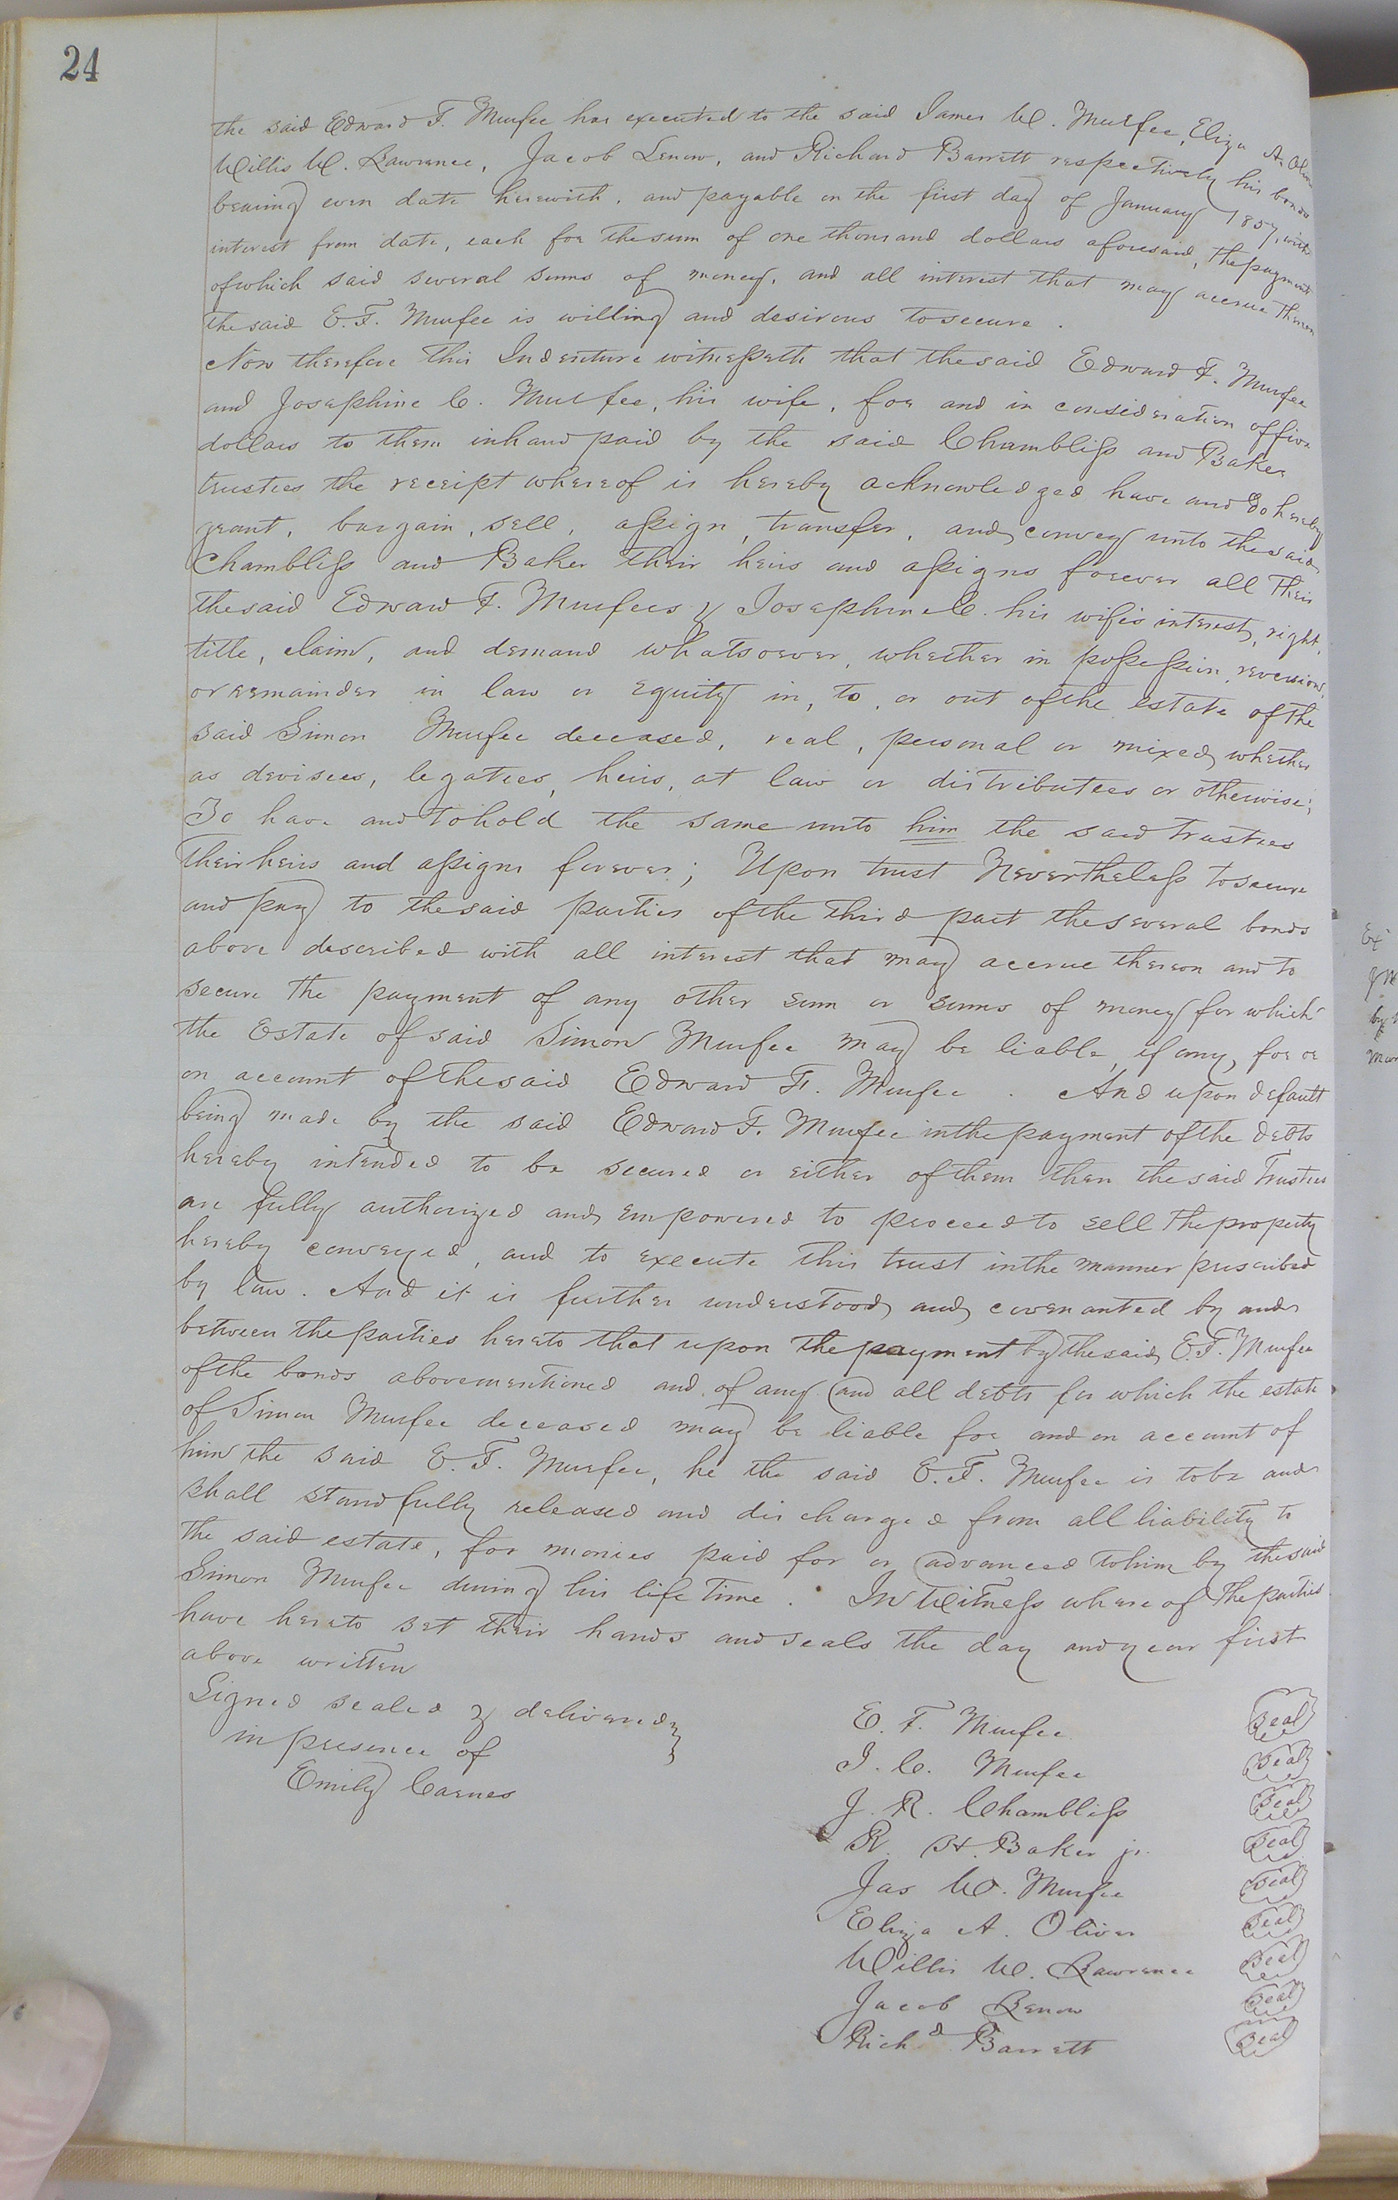 24
the said Edward F. Murfee has executed to the said James W. Murfee, Eliza A. Oliver
Willis W. Lawrence, Jacob Lenow, and Richard Barrett respectively his bonds
bearing even date herewith, and payable on the first day of January 1857, with
interest from date, each for the sum of one thousand dollars aforesaid, the payment
of which said several sums of money, and all interest that may accrue thereon
the said E. F. Murfee is willing and desirous to secure.
Now therefore this Indenture witnesseth that the said Edward F. Murfee
and Josephine C. Murfee, his wife, for and in consideration of five
dollars to them in hand paid by the said Chambliss and Baker
trustees the receipt whereof is hereby acknowledged have and do hereby
grant, bargain, sell, assign, transfer, and convey unto the said
Chambliss and Baker their heirs and assigns forever all their
the said Edward F. Murfees & Josephine C. his wifes interest, right,
title, claim, and demand whatsoever, whether in possession, reversion,
or remainder in law or equity in, to, or out of the estate of the
said Simon Murfee deceased, real, personal or mixed, whether
as devisees, legatees, heirs, at law or distributees or otherwise;
To have and to hold the same unto him the said trustees
their heirs and assigns forever; Upon trust Nevertheless to secure
and pay to the said parties of the third part the several bonds
above described with all interest that may accrue thereon and to
secure the payment of any other sum or sums of money for which
the Estate of said Simon Murfee may be liable, if any, for or
on account of the said Edward F. Murfee. And upon default
being made by the said Edward F. Murfee in the payment of the debts
hereby intended to be secured or either of them then the said Trustees
are fully authorized and empowered to proceed to sell the property
hereby conveyed, and to execute this trust in the manner prescribed
by law. And it is further understood and covenanted by and
between the parties hereto that upon the payment by the said E. F. Murfee
of the bonds abovementioned and of any and all debts for which the estate
of Simon Murfee deceased may be liable for and on account of
him the said E. F. Murfee, he the said E. F. Murfee is to be and
shall stand fully released and discharged from all liability to
the said estate, for monies paid for or advanced to him by the said
Simon Murfee during his life time. In Witness whereof the parties
have hereto set their hands and seals the day and year first
above written
Signed sealed & delivered
in presence of
Emily Carnes
E. F. Murfee Seal
J. C. Murfee Seal
J. R. Chambliss Seal
R. H. Baker jr. Seal
Jas W. Murfee Seal
Eliza A. Oliver Seal
Willis W. Lawrence Seal
Jacob Lenow Seal
Richd Barrett Seal